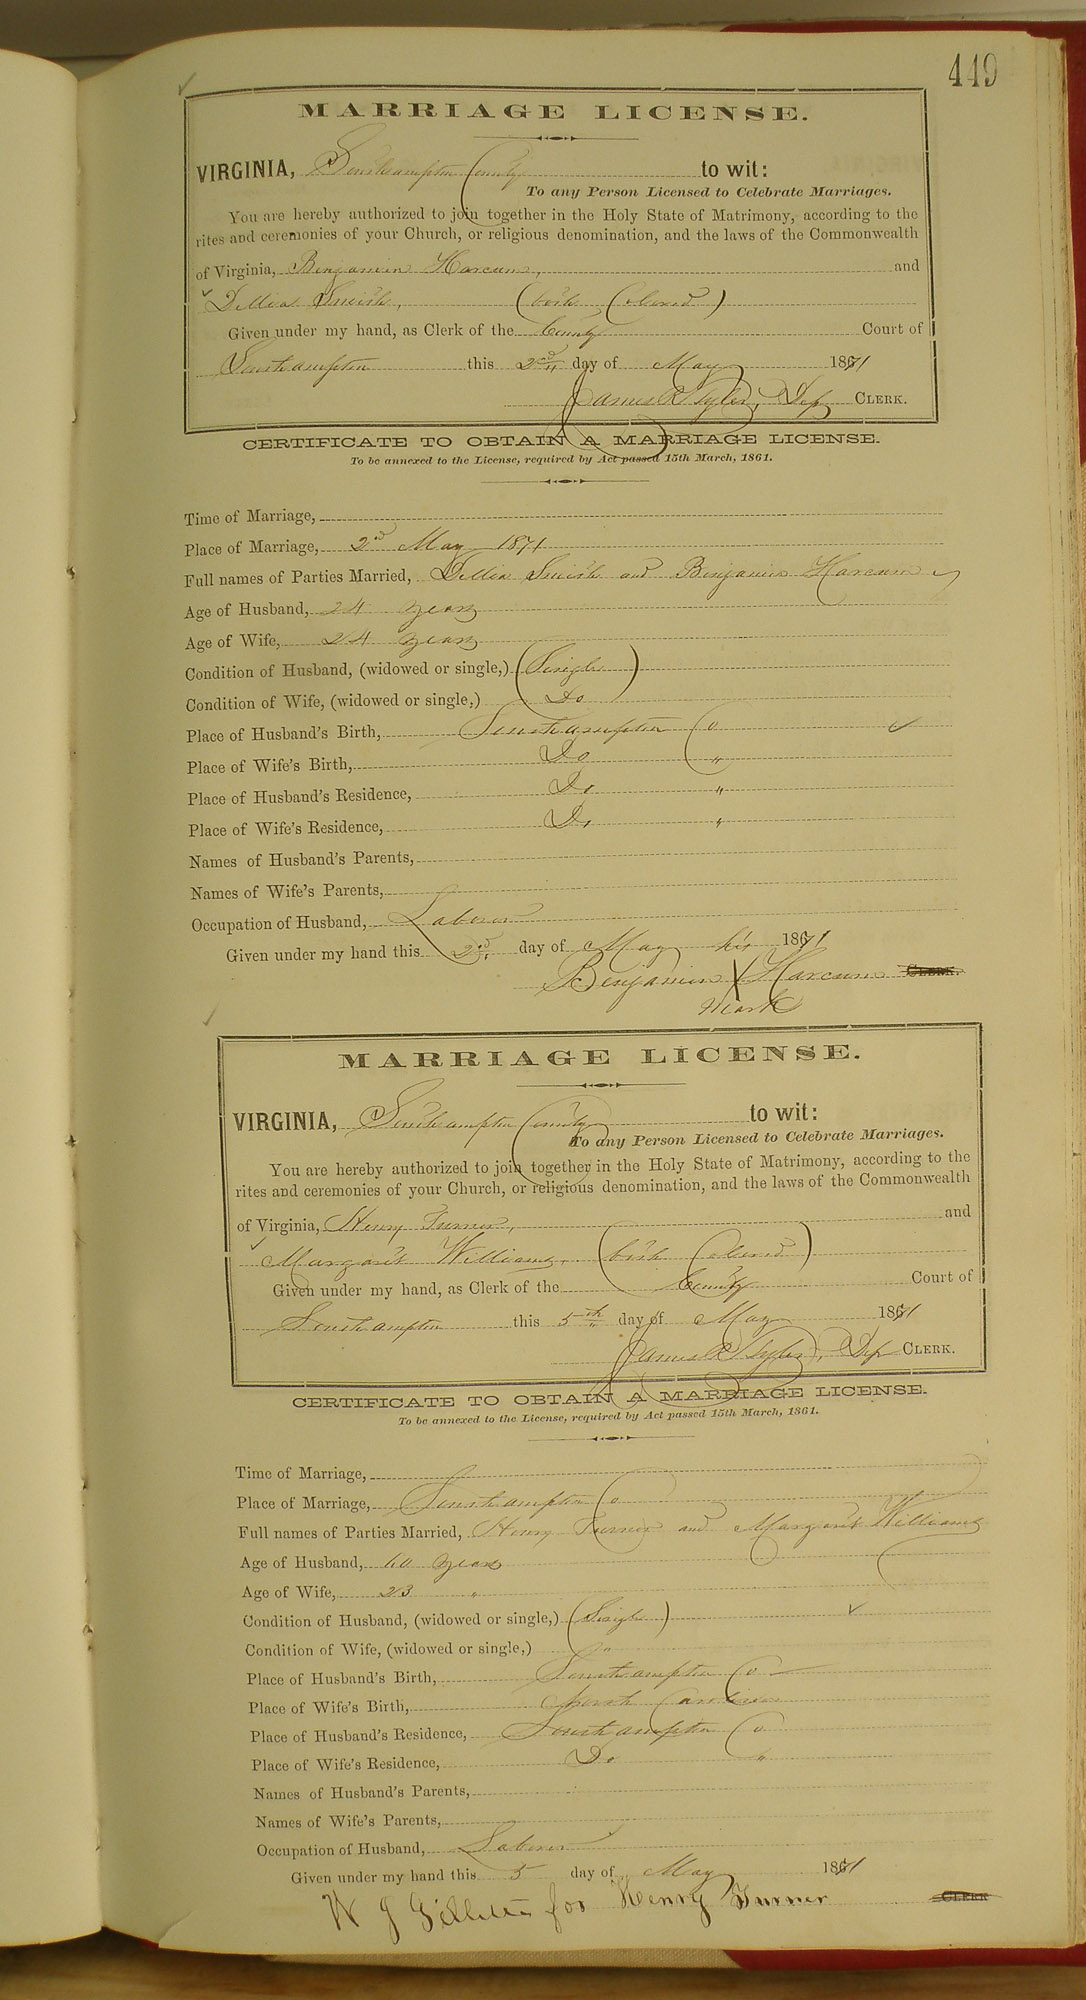 449
MARRIAGE LICENSE.
VIRGINIA, Southampton County to wit:
To any Person Licensed to Celebrate Marriages.
You are hereby authorized to join together in the Holy State of Matrimony, according to the
rites and ceremonies of your Church, or religious denomination, and the laws of the Commonwealth
of Virginia, Benjamin Harcum, and
Dellia Smith, (both Colored)
Given under my hand, as Clerk of the County Court of
Southampton this 2nd day of May 1871
James R Tyler, Dep CLERK.
CERTIFICATE TO OBTAIN A MARRIAGE LICENSE.
To be annexed to the License, required by Act passed 15th March, 1861.
Time of Marriage,
Place of Marriage, 2d May 1871
Full names of Parties Married, Dellia Smith and Benjamin Harcum
Age of Husband, 24 years
Age of Wife, 24 years
Condition of Husband, (widowed or single,) (Single)
Condition of Wife, (widowed or single,) Do
Place of Husband's Birth, Southampton Co
Place of Wife's Birth, Do "
Place of Husband's Residence, Do "
Place of Wife's Residence, Do "
Names of Husband's Parents,
Names of Wife's Parents,
Occupation of Husband, Laborer
Given under my hand this 2d day of May his 1871
Benjamin X Harcum CLERK.
mark
MARRIAGE LICENSE.
VIRGINIA, Southampton County to wit:
To any Person Licensed to Celebrate Marriages.
You are hereby authorized to join together in the Holy State of Matrimony, according to the
rites and ceremonies of your Church, or religious denomination, and the laws of the Commonwealth
of Virginia, Henry Turner, and
Margaret Williams, (both Colored)
Given under my hand, as Clerk of the County Court of
Southampton this 5th day of May 1871
James R Tyler, Dep CLERK.
CERTIFICATE TO OBTAIN A MARRIAGE LICENSE.
To be annexed to the License, required by Act passed 15th March, 1861.
Time of Marriage,
Place of Marriage, Southampton Co
Full names of Parties Married, Henry Turner and Margaret Williams
Age of Husband, 60 years
Age of Wife, 23 "
Condition of Husband, (widowed or single,) (Single)
Condition of Wife, (widowed or single,) "
Place of Husband's Birth, Southampton Co
Place of Wife's Birth, North Carolina
Place of Husband's Residence, Southampton Co
Place of Wife's Residence, Do "
Names of Husband's Parents,
Names of Wife's Parents,
Occupation of Husband, Laborer
Given under my hand this 5 day of May 1871
W J Gillette for Henry Turner CLERK